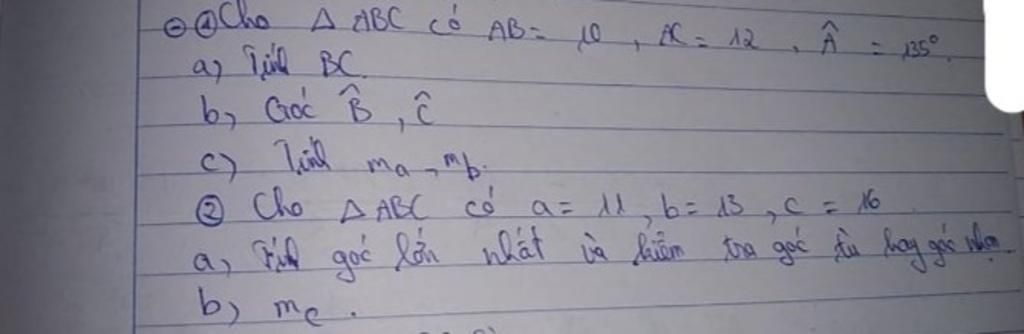 ① Cho △ ABC có AB = 10 , AC = 12 , Â = 135°.
a) Tính BC.
b) Góc B̂ , Ĉ
c) Tính ma , mb.
② Cho △ ABC có a = 11 , b = 13 , c = 16
a) Tính góc lớn nhất và kiểm tra góc tù hay góc nhọn.
b) mc .